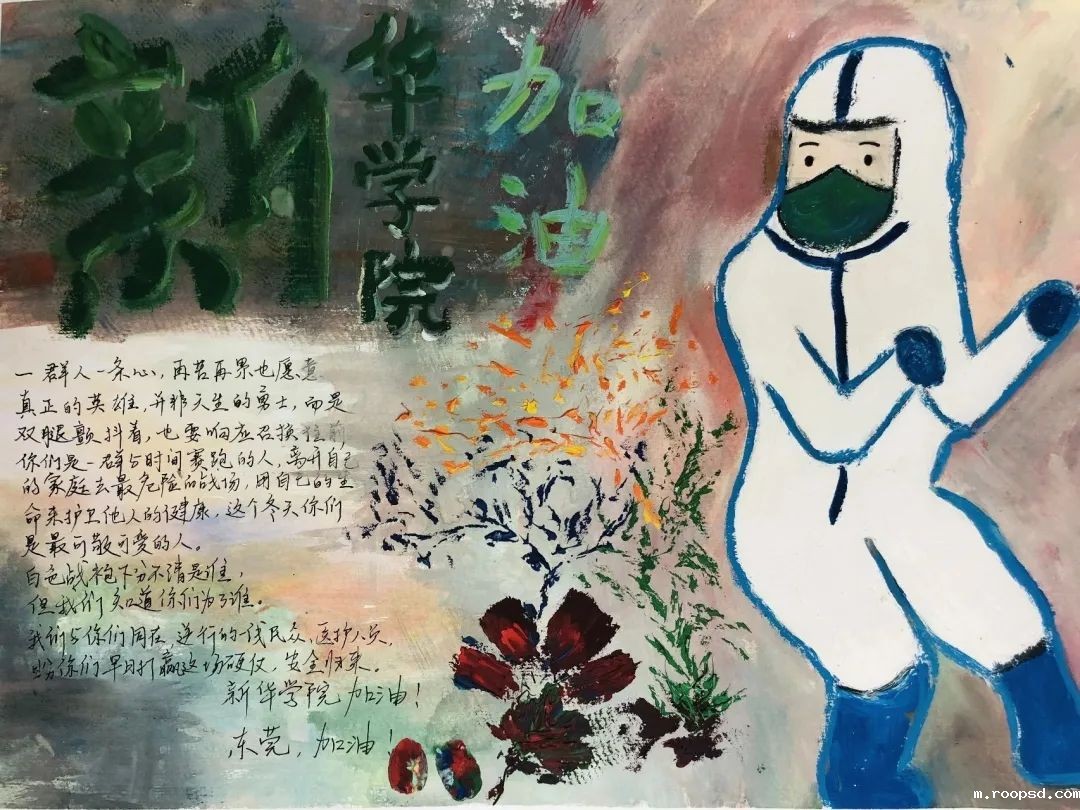 新华学院
加油
一群人一条心，再苦再累也愿意
真正的英雄，并非天生的勇士，而是
双腿颤抖着，也要响应召唤往前
你们是一群与时间赛跑的人，离开自己
的家庭去最危险的战场，用自己的生
命来护卫他人的健康，这个冬天你们
是最可敬可爱的人。
白色战袍下分不清是谁，
但我们知道你们为了谁。
我们与你们同在 逆行的一线民众、医护人员，
盼你们早日打赢这场硬仗，安全归来。
新华学院 加油！
东莞，加油！
m.roopsd.com